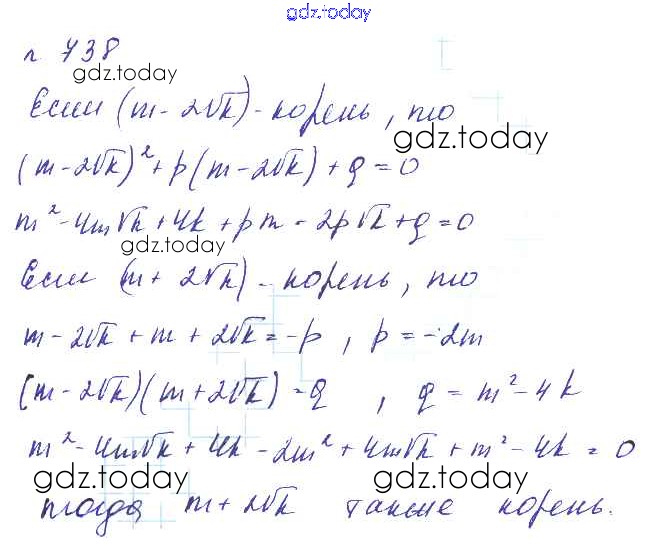 gdz.today
n 738
gdz.today
Если (m - 2√k) - корень, то
gdz.today
(m - 2√k)² + p(m - 2√k) + q = 0
m² - 4m√k + 4k + pm - 2p√k + q = 0
gdz.today
Если (m + 2√k) - корень, то
m - 2√k + m + 2√k = -p, p = -2m
(m - 2√k)(m + 2√k) = q, q = m² - 4k
m² - 4m√k + 4k - 2m² + 4m√k + m² - 4k = 0
gdz.today gdz.today
тогда m + 2√k также корень.